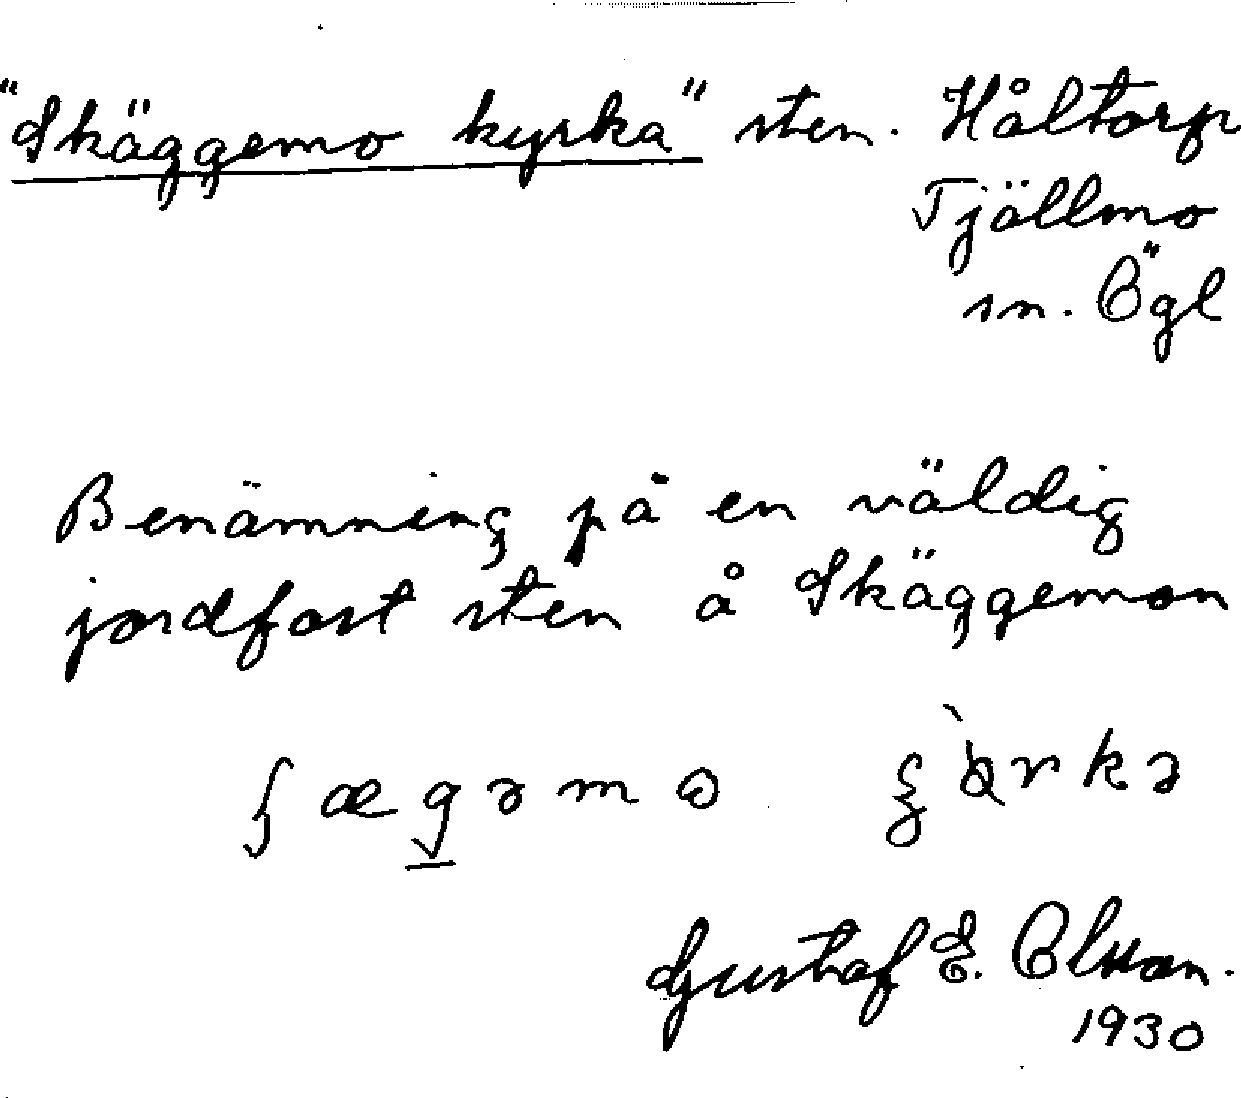 "Skäggemo kyrka" sten. Håltorp
Tjällmo
sn. Ögl
Benämning på en väldig
jordfast sten å Skäggemon
Gustaf E. Olsson.
1930